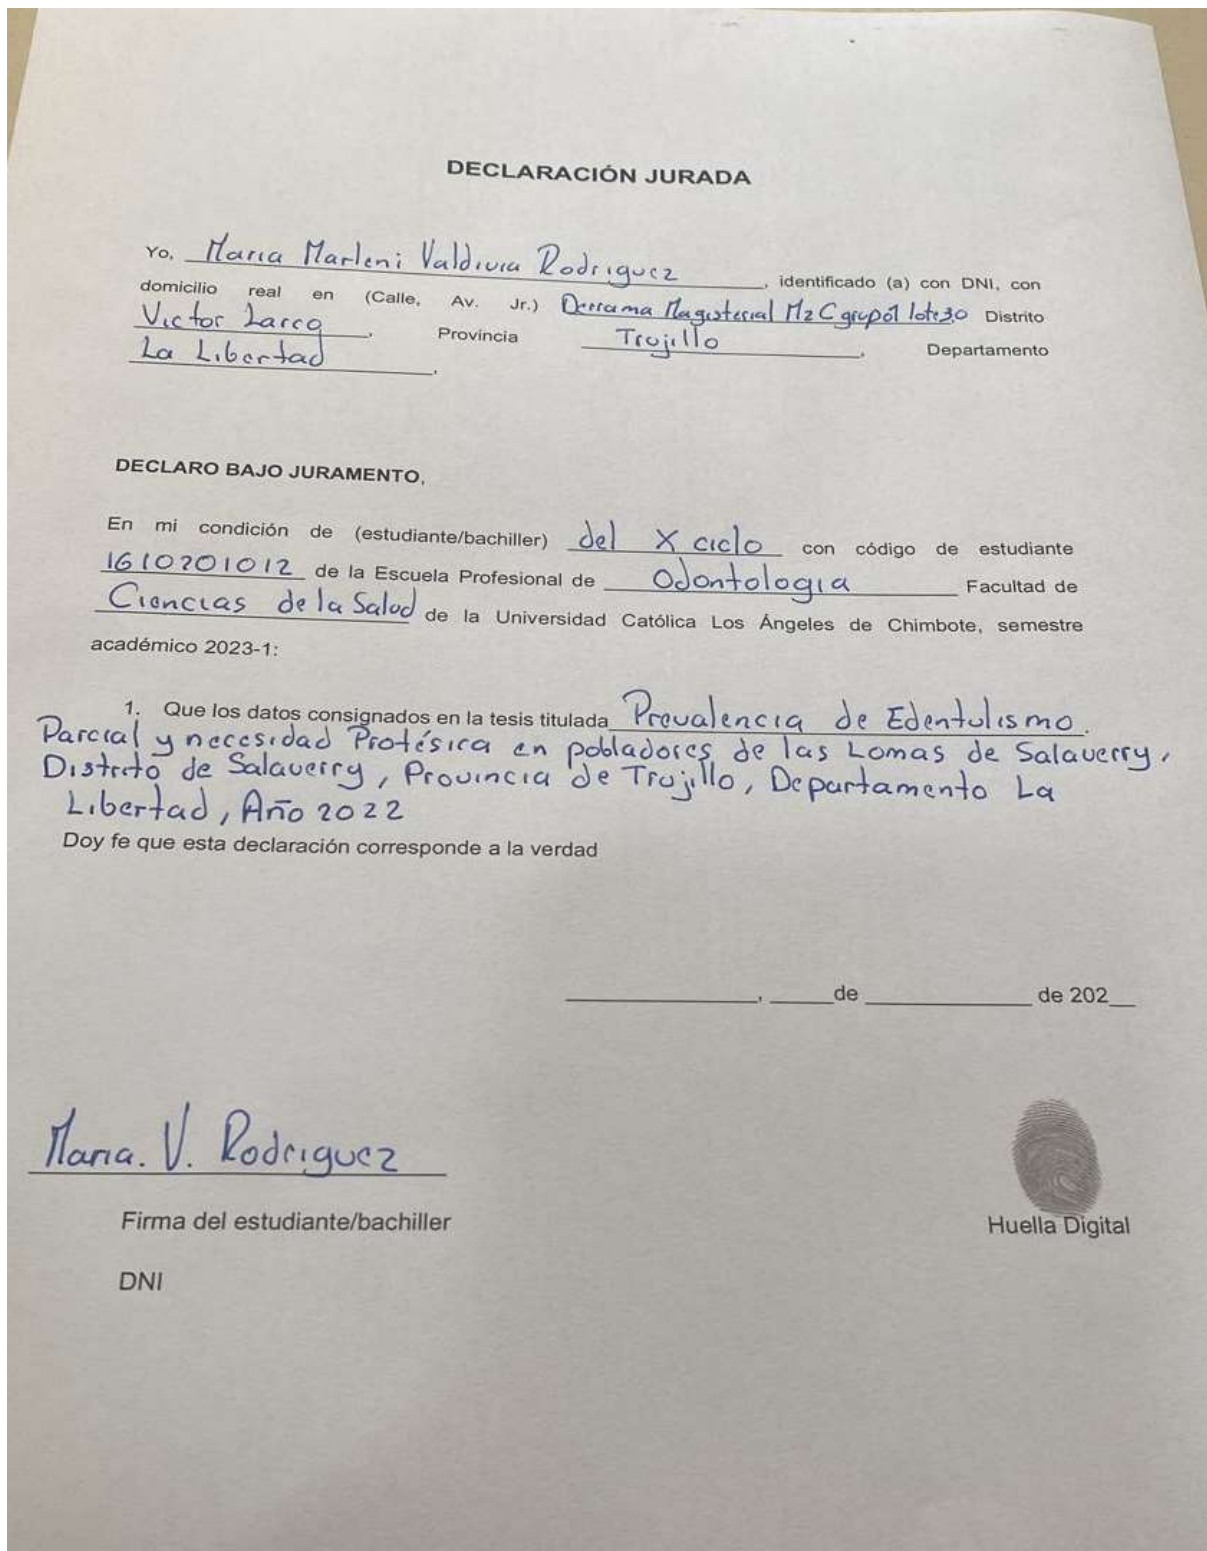 DECLARACIÓN JURADA
Yo, Maria Marleni Valdivia Rodriguez, identificado (a) con DNI, con
domicilio real en (Calle, Av. Jr.) Derrama Magisterial Mz C grupo1 lote30 Distrito
Victor Larco, Provincia Trujillo, Departamento
La Libertad,
DECLARO BAJO JURAMENTO,
En mi condición de (estudiante/bachiller) del X ciclo con código de estudiante
1610201012 de la Escuela Profesional de Odontologia Facultad de
Ciencias de la Salud de la Universidad Católica Los Ángeles de Chimbote, semestre
académico 2023-1:
1. Que los datos consignados en la tesis titulada Prevalencia de Edentulismo
Parcial y necesidad Protésica en pobladores de las Lomas de Salaverry,
Distrito de Salaverry, Provincia de Trujillo, Departamento La
Libertad, Año 2022
Doy fe que esta declaración corresponde a la verdad
____________, ____de ____________ de 202__
Maria. V. Rodriguez
Firma del estudiante/bachiller
Huella Digital
DNI